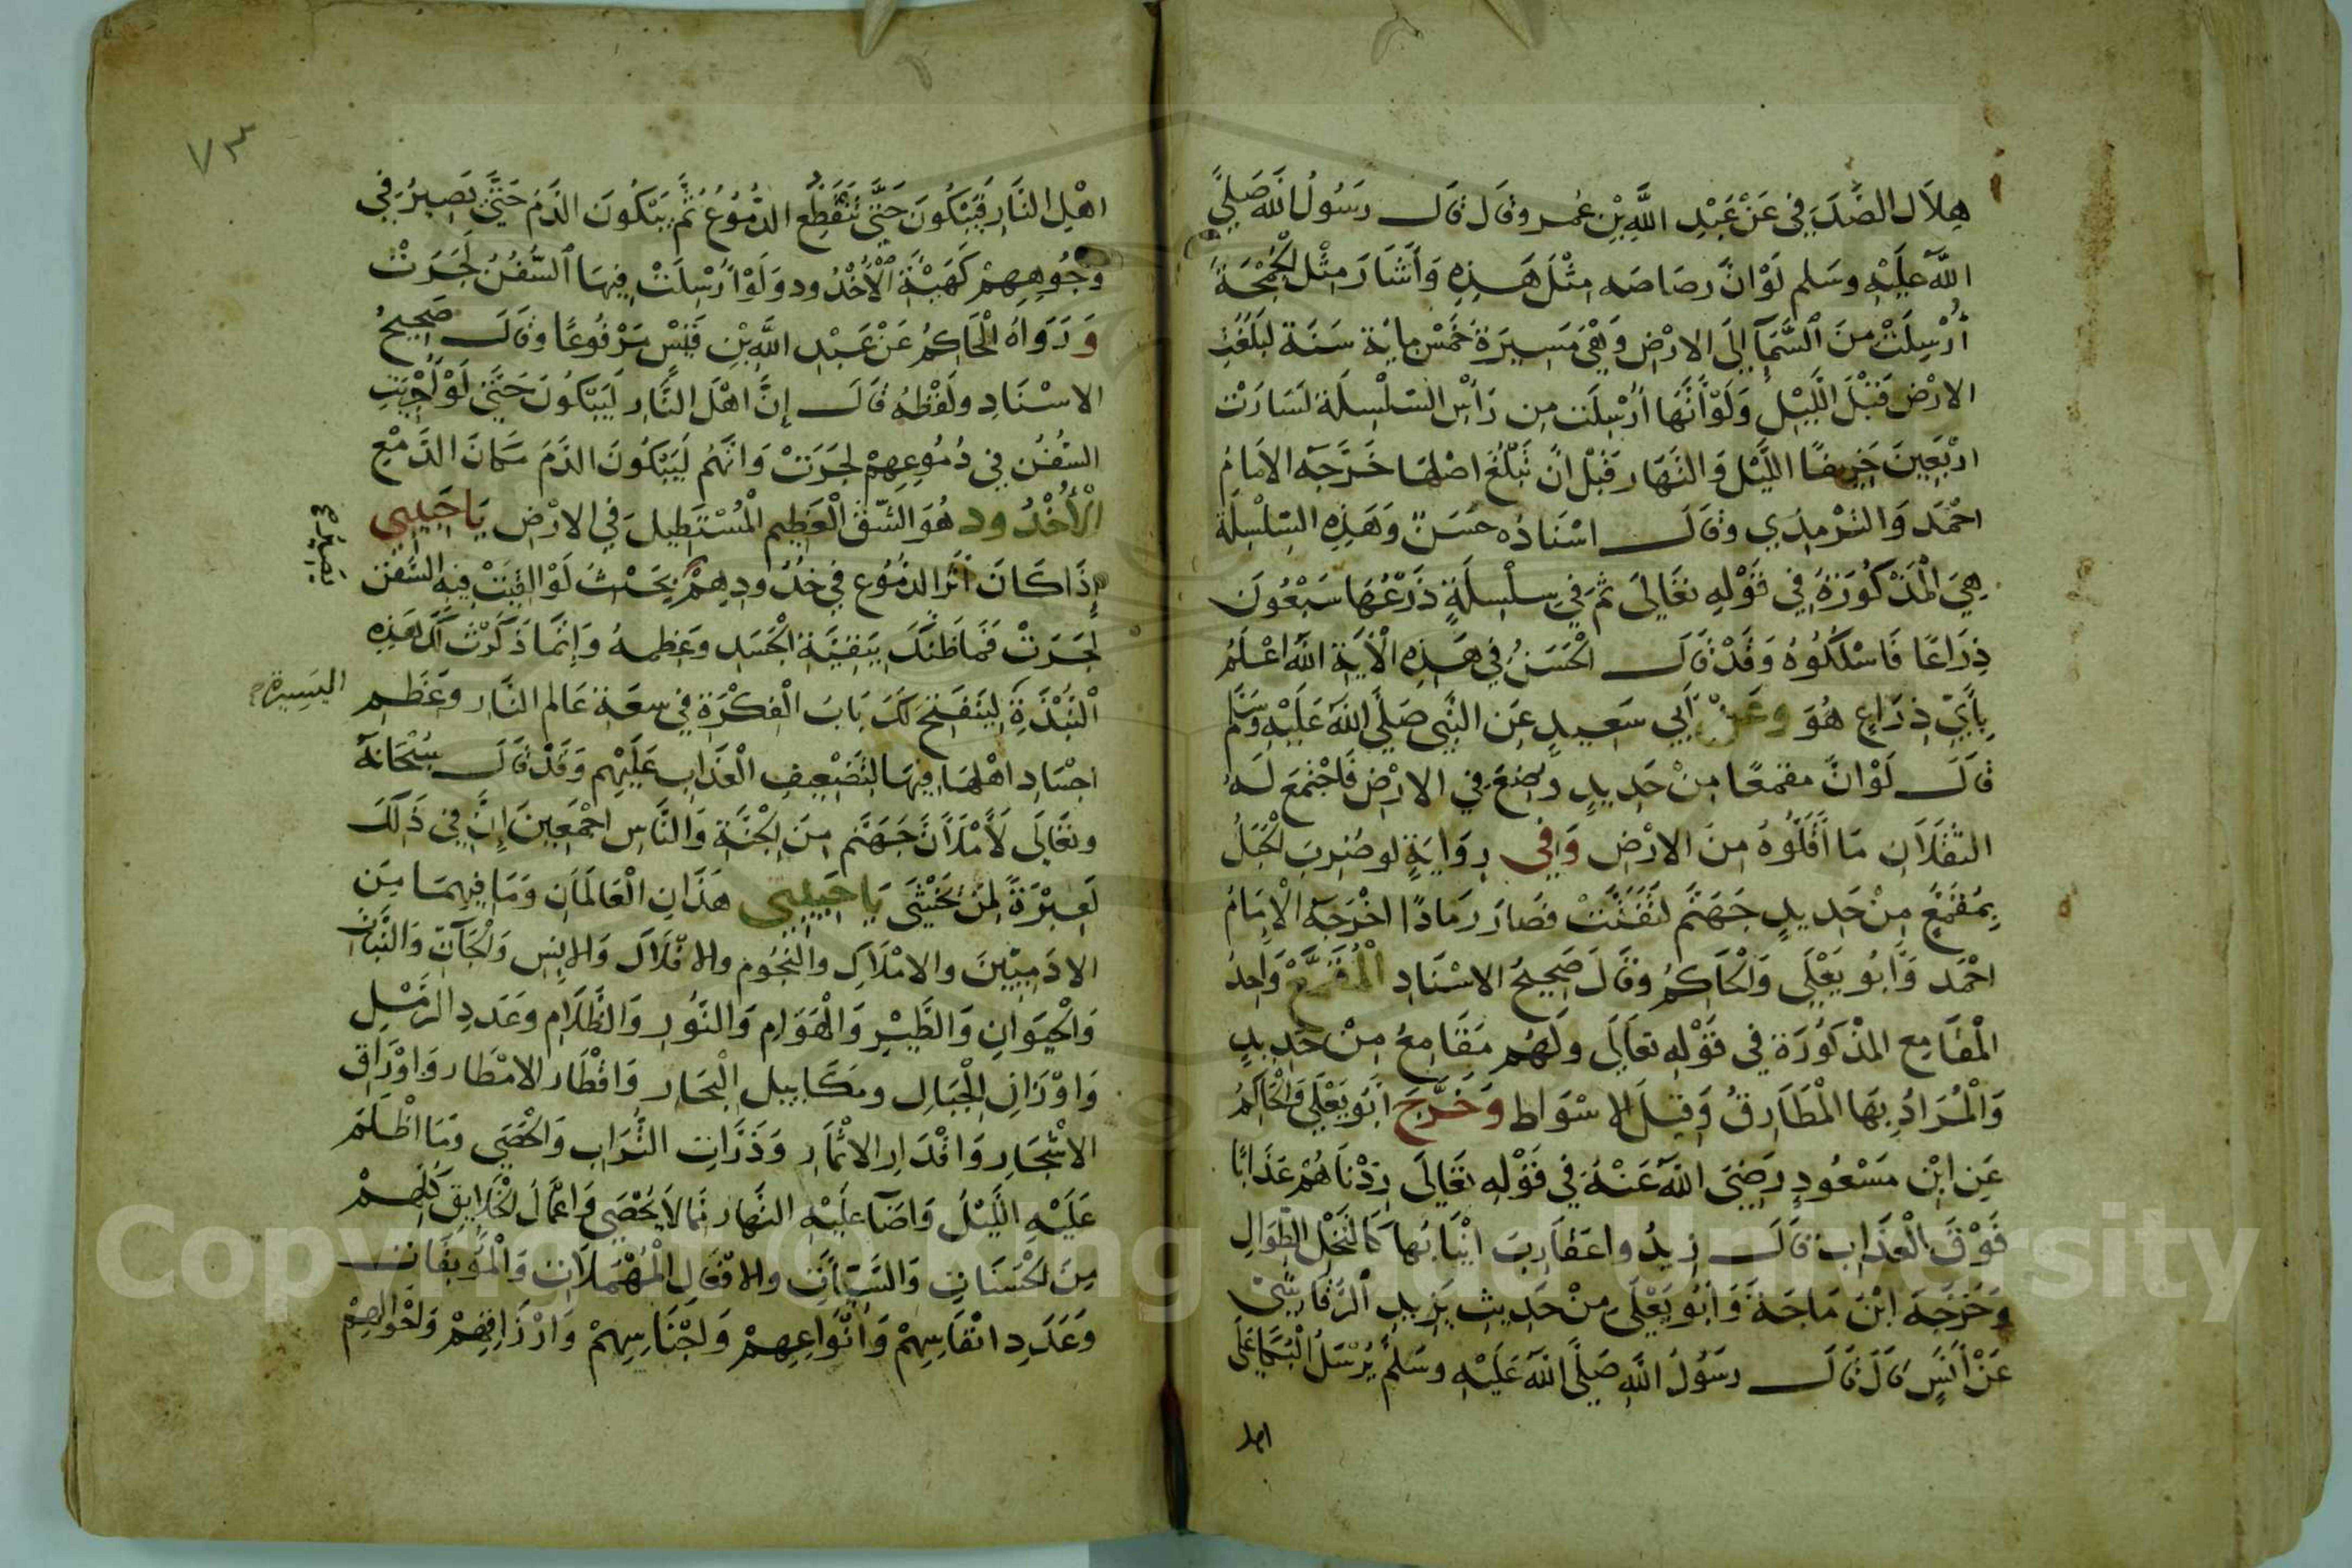 هِلاَل الصَّدَفي عَنْ عَبْدِ اللَّهِ بْنِ عُمر وقَالَ قال رَسُولُ اللَّه صَلىَّ
اللَّه عَلَيْهِ وسَلم لَوْ انَّ رصَاصَه مِثْلَ هَذِهِ وَأَشَارَ مِثْل الْجُمْجَةَ
أُرْسِلَتْ مِنَ السَّمَآءِ إِلَى الارْضِ وَهِيَ مَسِيرَةُ خَمْسَ مِايَة سَنَة لَبَلَغَتِ
الارْضَ قَبْلَ اللَّيْلِ وَلَوْ أَنَّهَا أُرْسِلَت مِن رَأسِ السّلْسِلَة لَسَارَتْ
ارْبَعِينَ خَرِيفًا اللَّيْل وَالنَّهَار قَبْل انْ تَبْلُغَ اصْلهَا خَرَّجَه الامَامُ
احْمَد وَالتِرْمِذِي وقَالَ اسْنَادُه حَسَنٌ وَهَذِهِ السِّلْسِلَة
هِيَ الْمَذْكُورَةُ فِي قَوْلِهِ تَعَالىَ ثمَ فيِ سِلْسِلَةٍ ذَرْعُهَا سَبْعُونَ
ذِرَاعًا فَاسْلُكُوهُ وَقَدْ قَالَ الْحَسَنُ فِي هَذِهِ الْأَيَةِ اللَّه اعْلَمُ
بِأَيِّ ذِرَاعٍ هُوَ وَعَنْ أَبِي سَعِيدٍ عَنِ النَّبِي صَلَّى اللَّه عَلَيْهِ وَسَلَّم
قَالَ لَوْ انَّ مقمعًا مِنْ حَدِيدٍ وُضِعَ فِي الارْضِ فَاجْتَمَعَ لَهُ
الثقَلَانِ مَا أَقَلُّوهُ مِنَ الارْضِ وَفِي رِوَايَةٍ لو ضُرِبَ الْجَبَلُ
بِمُقْمَعٍ مِنْ حَدِيدِ جَهَنَّم لتَفَتَّتْ فصَارَ رَمادًا اخْرَجَهُ الْإِمَامُ
احْمَد وَابُو يَعْلَى وَالْحَاكِمُ وقَالَ صَحِيحُ الاسْنَادِ الْمُقَمَّعُ وَاحِدُ
الْمقَامِع المذْكُورَة فِي قَوْلِهِ تعَالَى ولَهُم مَقَامِعُ مِنْ حَدِيدٍ
وَالْمُرَادُ بِهَا الْمَطَارِقُ وَقِيلَ الاسْوَاط وَخَرَّجَ أَبُو يَعْلَي وَالْحَاكمُ
عَنِ ابْن مَسْعُودٍ رَضِيَ اللَّه عَنْهُ فِي قَوْلِهِ تعَالَى زِدْنَاهُمْ عَذَابًا
فَوْقَ الْعَذَابِ قَالَ زِيدُوا عَقَارِبَ انْيَابُهَا كَالنَّخْلِ الطِّوَالِ
وَخَرَّجَهُ ابْن مَاجَةَ وَابُو يَعْلَى مِنْ حَدِيثِ يَزِيدِ الرَّقَاشِيِّ
عَنْ أَنَسٍ قَالَ قَالَ رسَوُلُ اللَّهِ صَلَّى اللَّهُ عَلَيْهِ وسَلَّم يُرْسَلُ الْبُكَاعَلَى
اهل
٧٣
اهْلِ النَّارِ فَيَبْكُونَ حَتَّى تَنْقَطِعَ الدُّمُوُعُ ثُمَّ يَبْكُونَ الدَّمَ حَتَّى تَصِيرُ فِي
وُجُوهِهِمْ كَهَيْئَةِ الْأُخْدُود وَلَوْ أُرْسِلَتْ فِيهَا السُّفُنُ لَجَرَتْ
وَرَوَاهُ الْحَاكِمُ عَنْ عَبْدِ اللَّهِ بْنِ قَيْسٍ مَرْفُوعًا وقَالَ صَحِيحُ
الاسْنَادِ ولَفْظُهُ قَالَ إِنَّ اهْلَ النَّارِ لَيَبْكُونَ حَتَّى لَوْ أُجْرِيَتِ
السُّفُن فِي دُمُوعِهِمْ لجَرَتْ وَانَّهُم لَيَبْكُونَ الدَمَ مَكَانَ الدَّمْعِ
الْأُخْدُود هُوَ الشّق الْعَظِيم الْمُسْتَطِيلَ فِي الارْضِ يَا حَبِيبِي
إِذَا كَانَ أثَرُ الدمُوُع فِي خُدُودِهِمْ بِحَيْثُ لَوْ القِيَتْ فِيهِ السُّفن
لجَرَتْ فَمَا ظَنُّكَ بِبَقِيَّةِ الْجَسَدِ وَعَظِمهُ وَاِنَّمَا ذَكَرْتُ لَكَ هَذِهِ
الْنُبْذَةِ لِيَنْفَتِحَ لَكَ بَابُ الْفِكْرَةِ فِي سِعَةِ عَالم النَّارِ وَعَظمِ
اليَسِيرة
اجْسَادِ اهْلهَا فِيهَا لتَضْعِيفِ الْعَذَابِ عَلَيْهِم وَقَدْ قَالَ سُبْحَانَهُ
وتعَالَى لَأَمْلَأَنَّ جَهَنَّم مِنَ الجْنَّةِ وَالنَّاسِ اجْمَعِينَ إِنَّ فِي ذَلِكَ
لَعِبْرَةً لِمَنْ يَخْشَى يَا حَبِيبِي هَذَانِ الْعَالَمَانِ وَمَا فِيهِمَا مِنَ
الادَمِيّينَ والامْلَاكِ والْنجُوُمِ والافْلَاكَ وَالانِسِ وَالْجَآنّ وَالنَّبَاتِ
وَالْحيوَانِ وَالطَّيْرِ وَالْهَوَامِ وَالنُّورِ وَالظَّلَامِ وَعَدَدِ الرَّمْلِ
وَاوْزَانِ الْجْبَالِ ومَكَاييِل الْبِحَارِ وَاقْطَار الامْطَار وَاوْرَاقِ
الاشْجَارِ وَاقْدَارِ الاثْمَارِ وَذَرَّاتِ التُّرَابِ وَالْحَصَى وَمَا اظْلَمَ
عَلَيْهِ اللَّيْلُ وَاضَآءَ عَلَيْهِ النَّهَار مَّا لاَ يُحْصَى وَاعْمَالَ الْخَلَايِقِ كُلِّهِمْ
مِنَ الْحَسَنَاتِ وَالسَّيّئَاتِ والافْعَالِ الْمُهْمَلاَتِ وَالْمُوبِقَاتِ
وَعَدَدِ انْفَاسِهِمْ وَأَنْوَاعِهِمْ وَاجْنَاسِهِمْ وَارْزَاقِهِمْ وَاحْوَالِهِمْ
Copyright © King Saud University